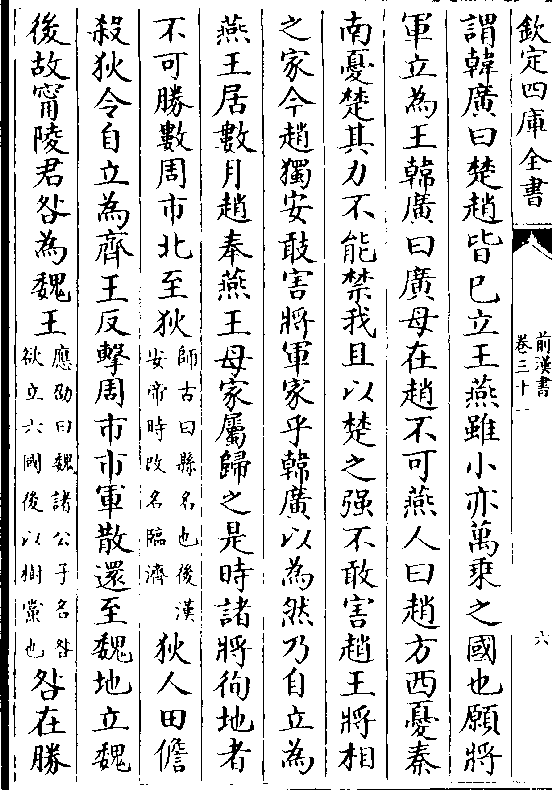 欽定四庫全書
前漢書
卷三十一
六
謂韓廣曰楚趙皆已立王燕雖小亦萬乘之國也願將
軍立為王韓廣曰廣母在趙不可燕人曰趙方西憂秦
南憂楚其力不能禁我且以楚之强不敢害趙王將相
之家今趙獨安敢害將軍家乎韓廣以為然乃自立為
燕王居數月趙奉燕王母家屬歸之是時諸將徇地者
不可勝數周市北至狄師古曰縣名也後漢安帝時改名臨濟狄人田儋
殺狄令自立為齊王反擊周市市軍散還至魏地立魏
後故甯陵君咎為魏王應劭曰魏諸公子名咎欲立六國後以樹黨也咎在勝